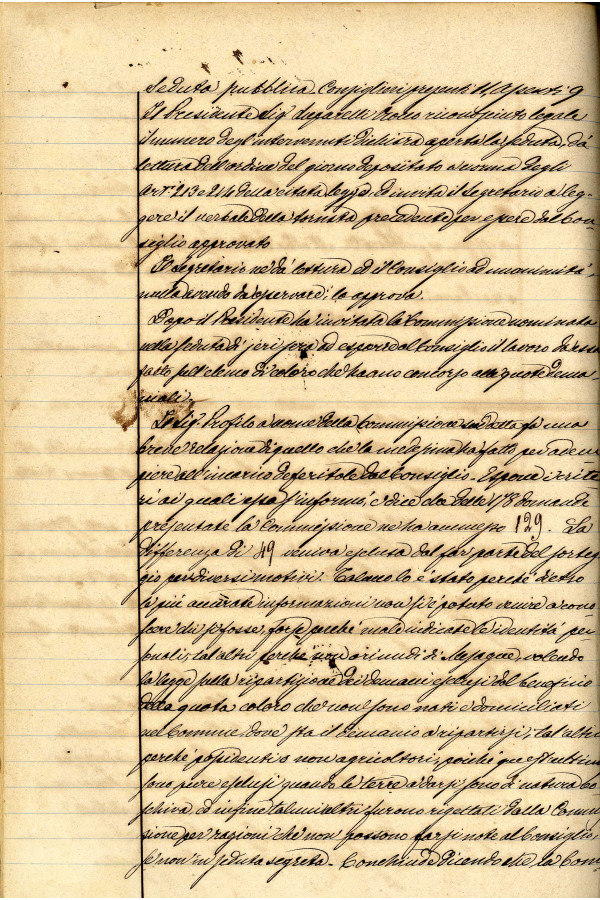 Seduta pubblica - Consiglieri presenti 11, Assenti 9
Il Presidente Sig. riconosciuto legale
il numero degl'intervenuti dichiara aperta la seduta, dà
lettura dell'ordine del giorno depositato a norma degli
Art. 213 e 214 della citata legge, ed invita il Segretario a leg-
gere il verbale della tornata precedente per essere dal Con-
siglio approvato
Il Segretario ne dà lettura ed il Consiglio ad unanimità,
nulla avendo da osservare, lo approva.
Dopo il Presidente ha invitato la Commissione nominata
nella seduta di jeri sera ad esporre al Consiglio il lavoro da essa
fatto sull'elenco di coloro che hanno concorso alle quote dema-
niali.
Il Sig. Profilo a nome della Commissione suddetta fa una
breve relazione di quello che la medesima ha fatto per adem-
piere all'incarico deferitole dal Consiglio - Espone i crite-
ri ai quali essa s'informò, e dice che delle 178 domande
presentate la Commissione ne ha ammesso 129. La
differenza di 49 veniva esclusa dal far parte del sorteg-
gio per diversi motivi. Talano lo è stato perché dietro
le più accurate informazioni non si è potuto venire a cono-
scere chi si fosse, forse perché male indicate le identità per-
sonali, tal'altri perché non oriundi di Mesagne, volendo
la legge sulla ripartizione dei demani esclusi dal beneficio
della quota coloro che non sono nati e domiciliati
nel Comune, dove sta il demanio a ripartirsi; tal'altri
perché possidenti o non agricoltori, poiché quest'ultimi
sono pure esclusi quando le terre a darsi sono di natura bo-
schiva, ed infine taluni altri furono rigettati dalla Commis-
sione per ragioni che non possono farsi note al Consiglio,
se non in seduta segreta - Conchiude dicendo che, la Com-